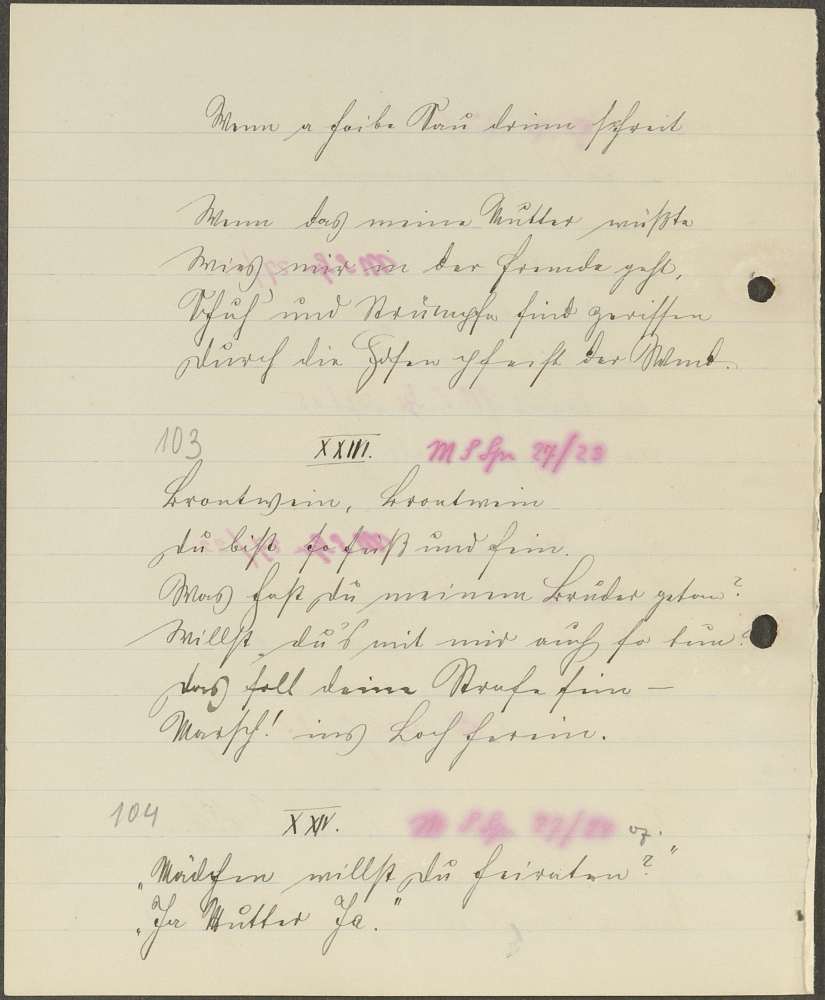 Wenn a haibe Sau drinn schreit
Wenn das meine Mutter wüßte
Wies mir in der Fremde geht,
Schuh' und Strümpfe sind zerissen
Durch die Hosen pfeift der Wind.
103 XXIII. M S Spr 27/28
Brantwein, Brantwein
Du bist so süß und fein.
Was hast Du meinem Bruder getan?
Willst du's mit mir auch so tun?
Das soll deine Strafe sein —
Marsch! ins Loch herein.
104 XXIV. M S Spr 27/28
„Mädchen willst Du heiraten?"
„Ja Mutter Ja."